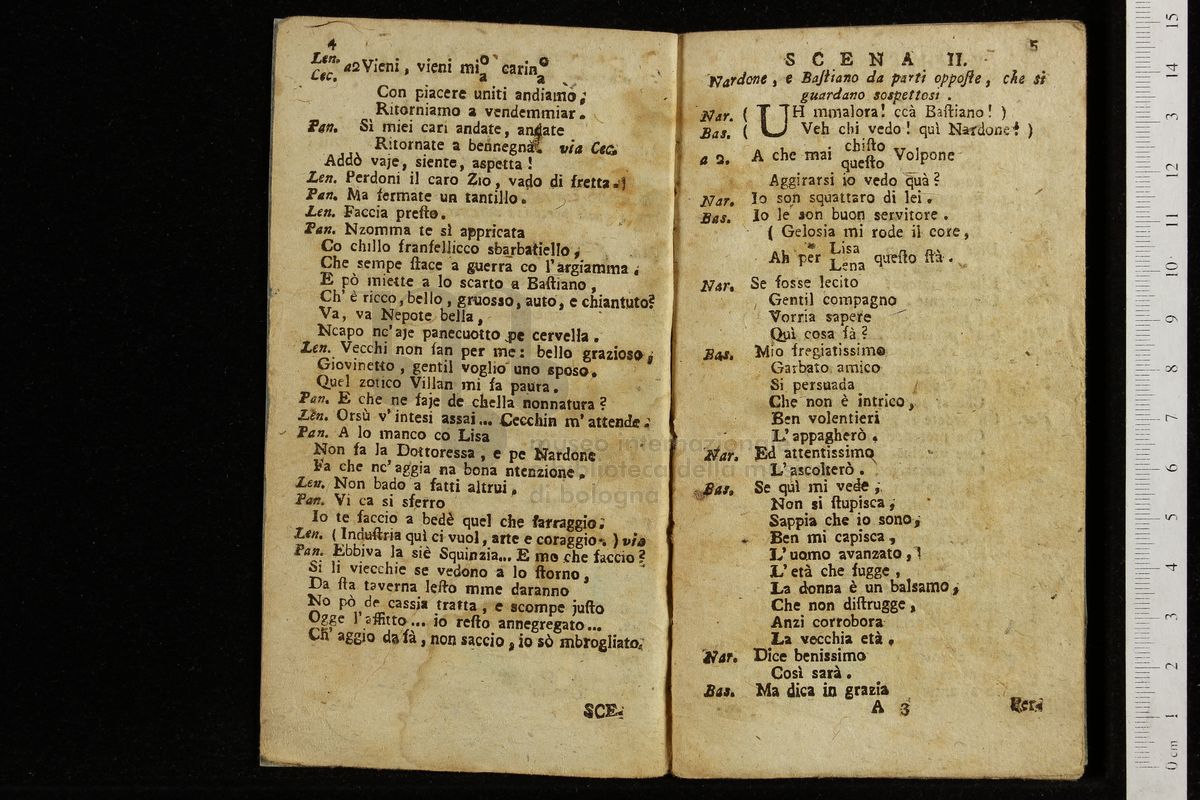 4
Len. a2 Vieni, vieni mio carino
Cec. a a
Con piacere uniti andiamo;
Ritorniamo a vendemmiar.
Pan. Sì miei cari andate, andate
Ritornate a bennegnà. via Cec.
Addò vaje, siente, aspetta!
Len. Perdoni il caro Zio, vado di fretta.
Pan. Ma fermate un tantillo.
Len. Faccia preſto.
Pan. Nzomma te sì appricata
Co chillo franfellicco sbarbatiello,
Che sempe ſtace a guerra co l'argiamma.
E pò miette a lo scarto a Baſtiano,
Ch' è ricco, bello, gruosso, auto, e chiantuto?
Va, va Nepote bella,
Ncapo nc'aje panecuotto pe cervella.
Len. Vecchi non fan per me: bello grazioso,
Giovinetto, gentil voglio uno sposo.
Quel zotico Villan mi fa paura.
Pan. E che ne faje de chella nonnatura?
Len. Orsù v'intesi assai... Cecchin m'attende.
Pan. A lo manco co Lisa
Non fa la Dottoressa, e pe Nardone
Fa che nc'aggia na bona ntenzione.
Len. Non bado a fatti altrui.
Pan. Vi ca si sferro
Io te faccio a bedè quel che farraggio.
Len. (Induſtria quì ci vuol, arte e coraggio.) via
Pan. Ebbiva la siè Squinzia... E mo che faccio?
Si li viecchie se vedono a lo ſtorno,
Da ſta taverna leſto mme daranno
No pò de cassia tratta, e scompe juſto
Ogge l'affitto... io reſto annegregato...
Ch' aggio da fà, non saccio, io sò mbrogliato.
SCE.
5
SCENA II.
Nardone, e Baſtiano da parti oppoſte, che si
guardano sospettosi.
Nar. ( UH mmalora! ccà Baſtiano! )
Bas. ( Veh chi vedo! quì Nardone! )
a 2. A che mai chiſto Volpone
queſto
Aggirarsi io vedo quà?
Nar. Io son squattaro di lei.
Bas. Io le son buon servitore.
( Gelosia mi rode il core,
Ah per Lisa queſto ſtà.
Lena
Nar. Se fosse lecito
Gentil compagno
Vorria sapere
Quì cosa fà?
Bas. Mio fregiatissimo
Garbato amico
Si persuada
Che non è intrico,
Ben volentieri
L'appagherò.
Nar. Ed attentissimo
L'ascolterò.
Bas. Se quì mi vede,
Non si ſtupisca,
Sappia che io sono,
Ben mi capisca,
L'uomo avanzato,
L'età che fugge,
La donna è un balsamo,
Che non diſtrugge,
Anzi corrobora
La vecchia età.
Nar. Dice benissimo
Così sarà.
Bas. Ma dica in grazia
A 3
Per.
museo internazionale
biblioteca della m
di bologna